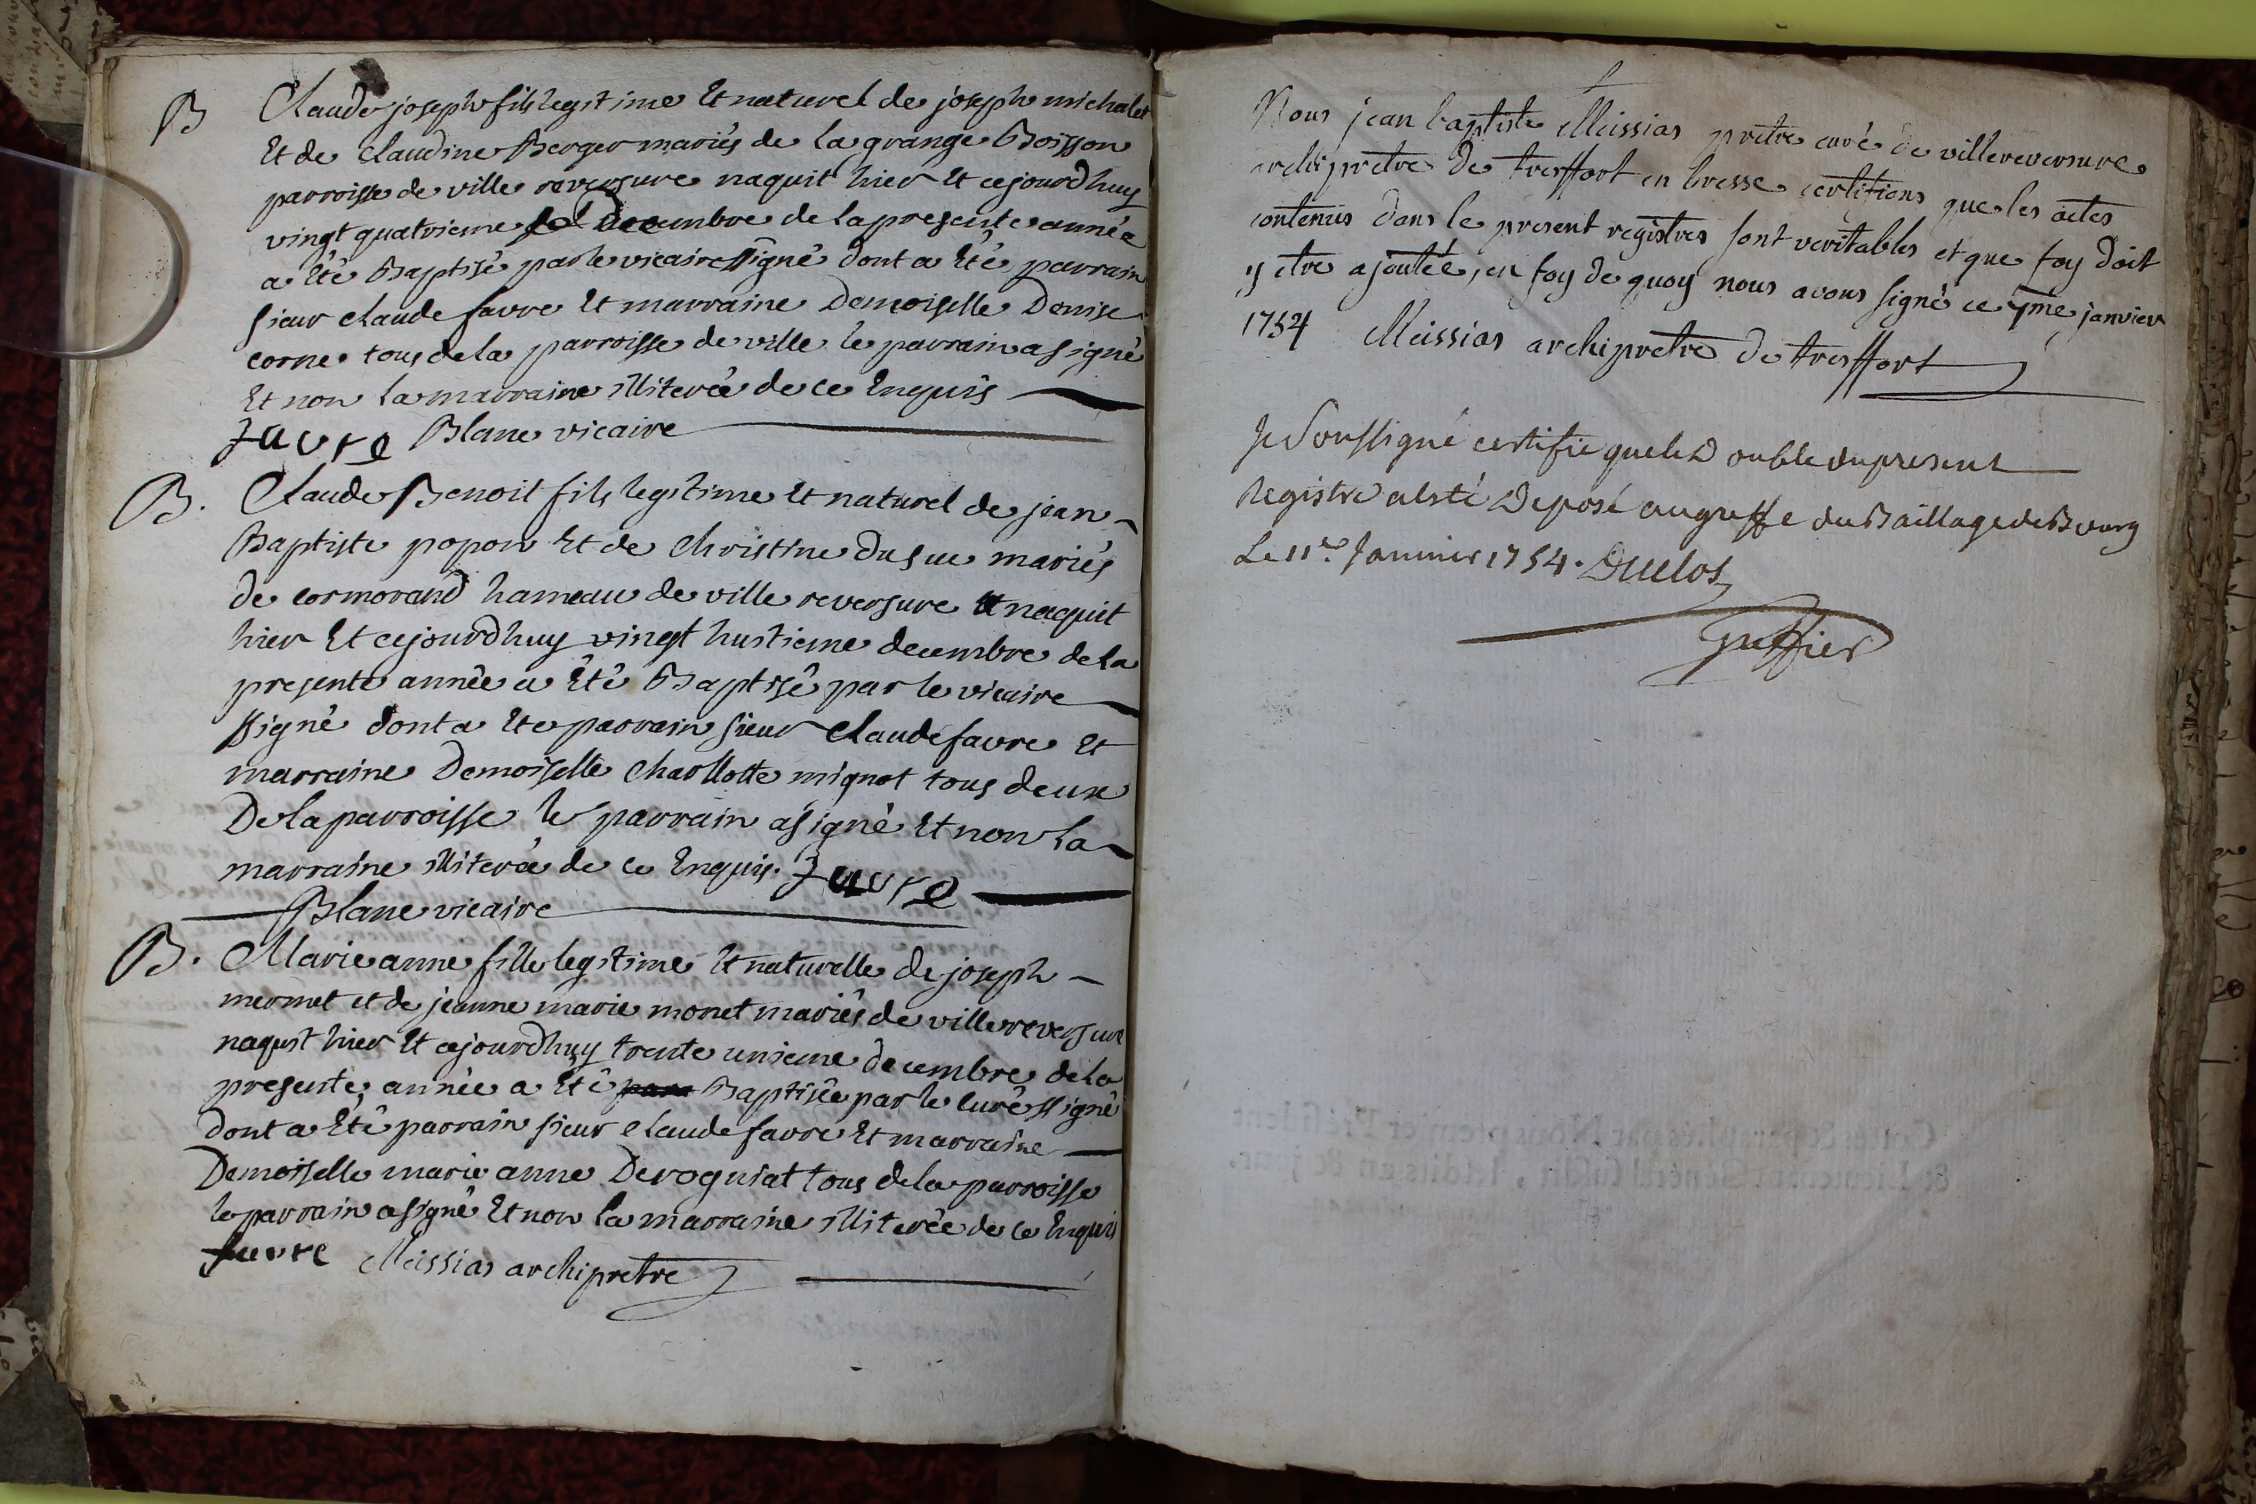 B Claude joseph fils legitime Et naturel de joseph michalet
Et de Claudine Berger mariés de la grange Boisson
parroisse de ville reversure naquit hier Et cejourdhuy
vingt quatrieme decembre de la presente année
a Eté Baptisé par le vicaire ssigné dont a Eté parrain
sieur claude favre Et marraine Demoiselle Denise
corne tous de la parroisse de ville le parrain a signé
Et non la marraine illiterée de ce Enquis
favre Blanc vicaire
B. Claude Benoit fils legitime Et naturel de jean
Baptiste popon Et de Christine du suc mariés
de cormorand hameau de ville reversure naquit
hier Et cejourdhuy vingt huitieme decembre de la
presente année a Eté Baptisé par le vicaire
ssigné dont a Eté parrain sieur Claude favre Et
marraine Demoiselle Charllotte mignot tous deux
De la parroisse le parrain a signé Et non la
marraine illiterée de ce Enquis. favre
Blanc vicaire
B. Marie anne fille legitime Et naturelle de joseph
mermet et de jeanne marie monet mariés de ville reversure
naquit hier Et cejourdhuy trente unieme decembre de la
presente année a Eté Baptisée par le curé ssigné
dont a Eté parrain sieur claude favre Et marraine
Demoiselle marie anne Deroguiat tous de la parroisse
le parrain a signé Et non la marraine illiterée de ce Enquis
favre Meissias archipretre
Nous jean baptiste Meissias pretre curé de villereversure
archipretre de tresffort en bresse certifions que les actes
contenus dans le present registres sont veritables et que foy doit
y etre ajoutée, en foy de quoy nous avons signé ce 7me janvier
1754 Meissias archipretre de tresffort
Je Soussigné certifie que le Double du present
Registre a esté Deposé au greffe du Baillage de Bourg
Le 11e. Janvier 1754. Duclos
Greffier